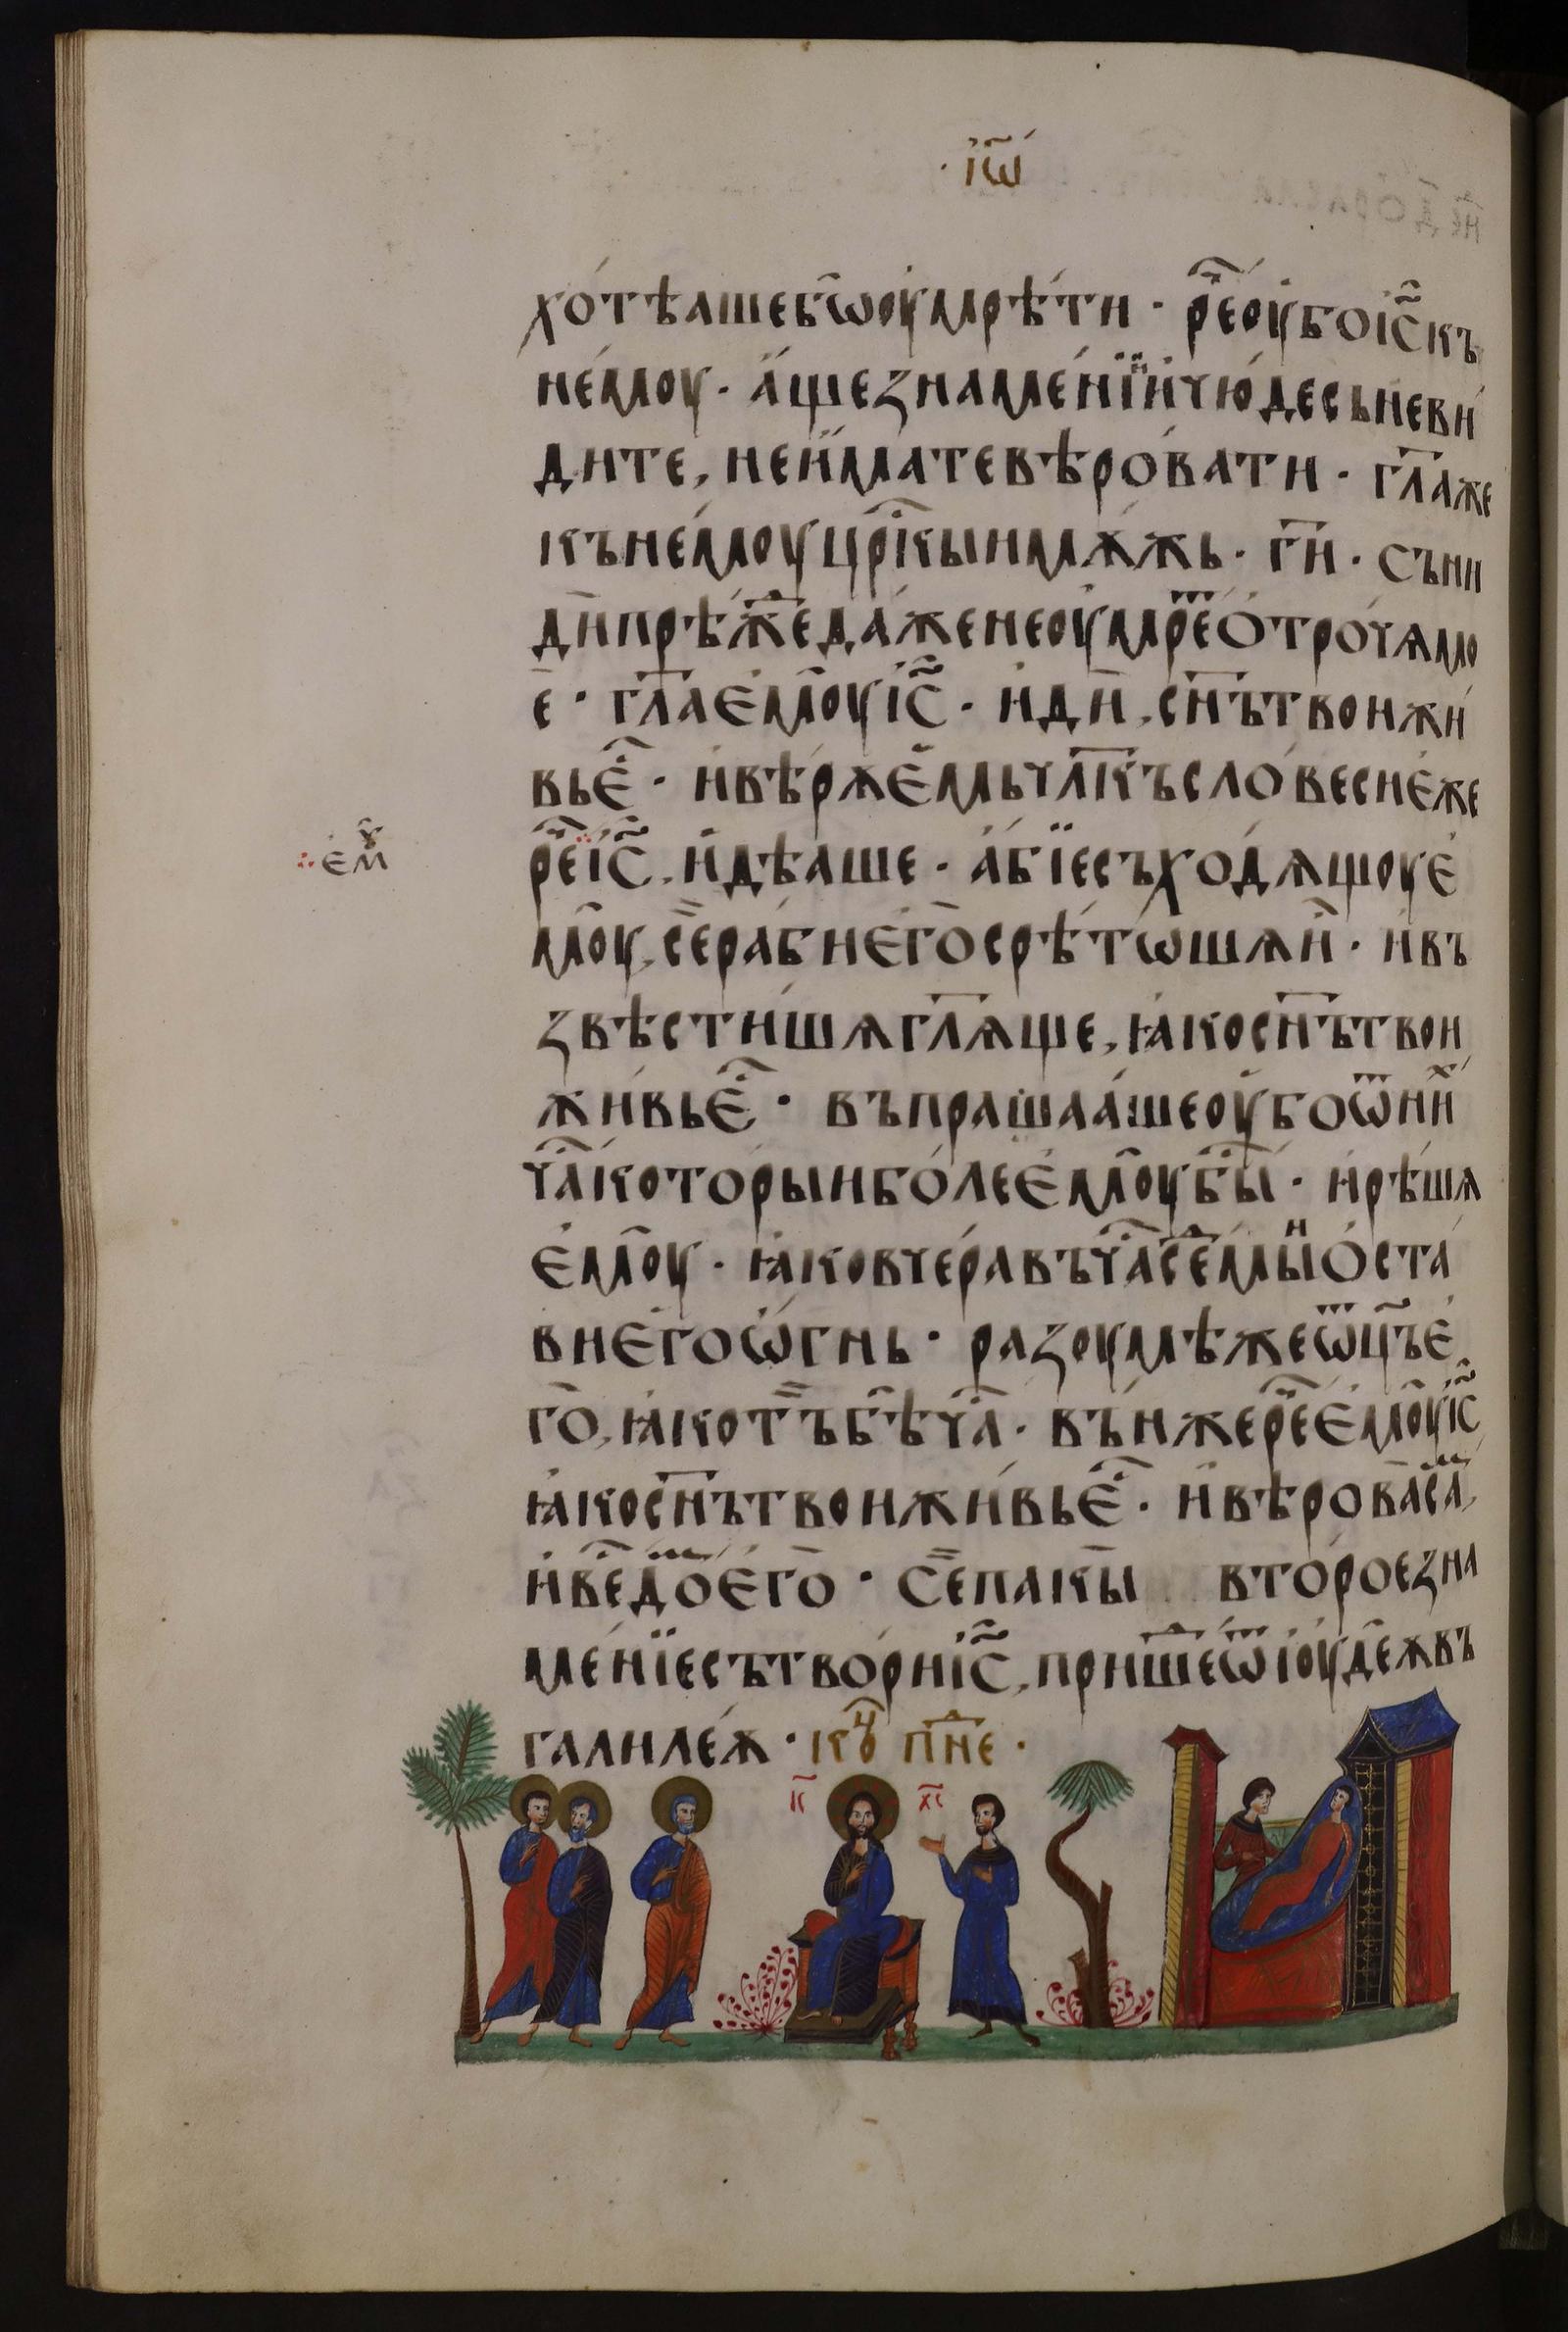 · і҆ѡ҃
хо́тѣашебѡ҃оу҆мрѣ́ти · ре҃оу҆боі҆с҃къ
не́моу · а҆́щезнаме́нїи҆чю́десьневи́
дите, неи҆́матевѣро́вати · гл҃аже
кънемоуцр҃кыимѫжь · ги҃ · съни
ди҆прѣж҃едаженеоу҆мре҃о́тро́чѧмо
е · гл҃ае҆моуі҆с҃ · и҆ди҆, сн҃ътвоижи́
вье҃ · и҆вѣ́рѫе҆мьчл҃късло́веснеже
ре҃і҆с҃, и҆дѣаше · а҆́бїесъхо́дѧщоуе҆
моу, се҃раби́е҆го҃срѣ́тѡшѧи҆ · и҆въ
звѣсти́шѧгл҃ѧще, ꙗ҆косн҃ътвои
жи́вье҃ · въпрашаа́шеоу҆боѿни́
ча҃которыибо́лее҆моубы҃ · и҆рѣ́шѧ
е҆моу · ꙗ҆ковчера́въча҃се҃мыи҆о҆ста́
вие҆гоѡ҆́гнь · разоумѣжеѿц҃ъе҆
го҃, ꙗ҆кот҃ъбѣ҃ча҃ · въ́ижере҃е҆моуі҆с҃
ꙗ҆косн҃ътвоижи́вье҃ · и҆вѣ́рова҃са҃,
и҆ве҃до҃е҆го҃ · се҃пакы҃ второ́оезна
ме́нїесътвори́і҆с҃, прише҃ѿі҆оудеѫвъ
галиле́ѫ · ко҃ц пн҃е ·
∴ е҆м҃х
і҃с х҃с